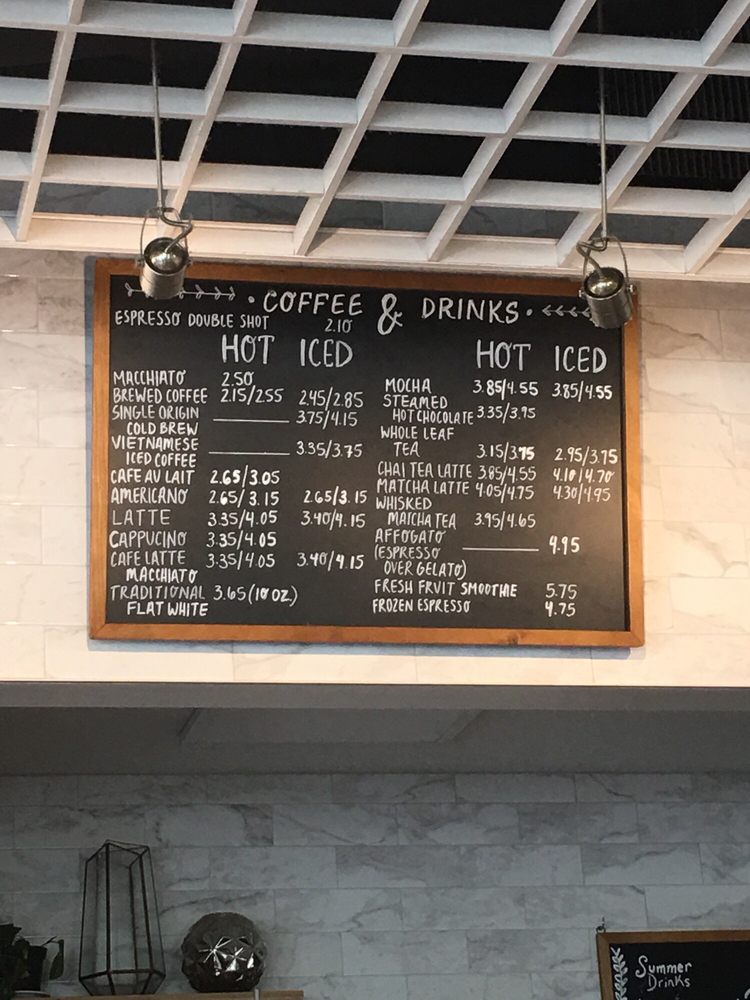 COFFEE & DRINKS
ESPRESSO DOUBLE SHOT 2.10
HOT ICED
MACCHIATO 2.50
BREWED COFFEE 2.15/2.55 2.45/2.85
SINGLE ORIGIN 3.75/4.15
COLD BREW
VIETNAMESE 3.35/3.75
ICED COFFEE
CAFE AU LAIT 2.65/3.05
AMERICANO 2.65/3.15 2.65/3.15
LATTE 3.35/4.05 3.40/4.15
CAPPUCINO 3.35/4.05
CAFE LATTE 3.35/4.05 3.40/4.15
MACCHIATO
TRADITIONAL 3.65(10 OZ.)
FLAT WHITE
HOT ICED
MOCHA 3.85/4.55 3.85/4.55
STEAMED
HOT CHOCOLATE 3.35/3.95
WHOLE LEAF
TEA 3.15/3.75 2.95/3.75
CHAI TEA LATTE 3.85/4.55 4.10/4.70
MATCHA LATTE 4.05/4.75 4.30/4.95
WHISKED
MATCHA TEA 3.95/4.65
AFFOGATO
(ESPRESSO 4.95
OVER GELATO)
FRESH FRUIT SMOOTHIE 5.75
FROZEN ESPRESSO 4.75
Summer
Drinks